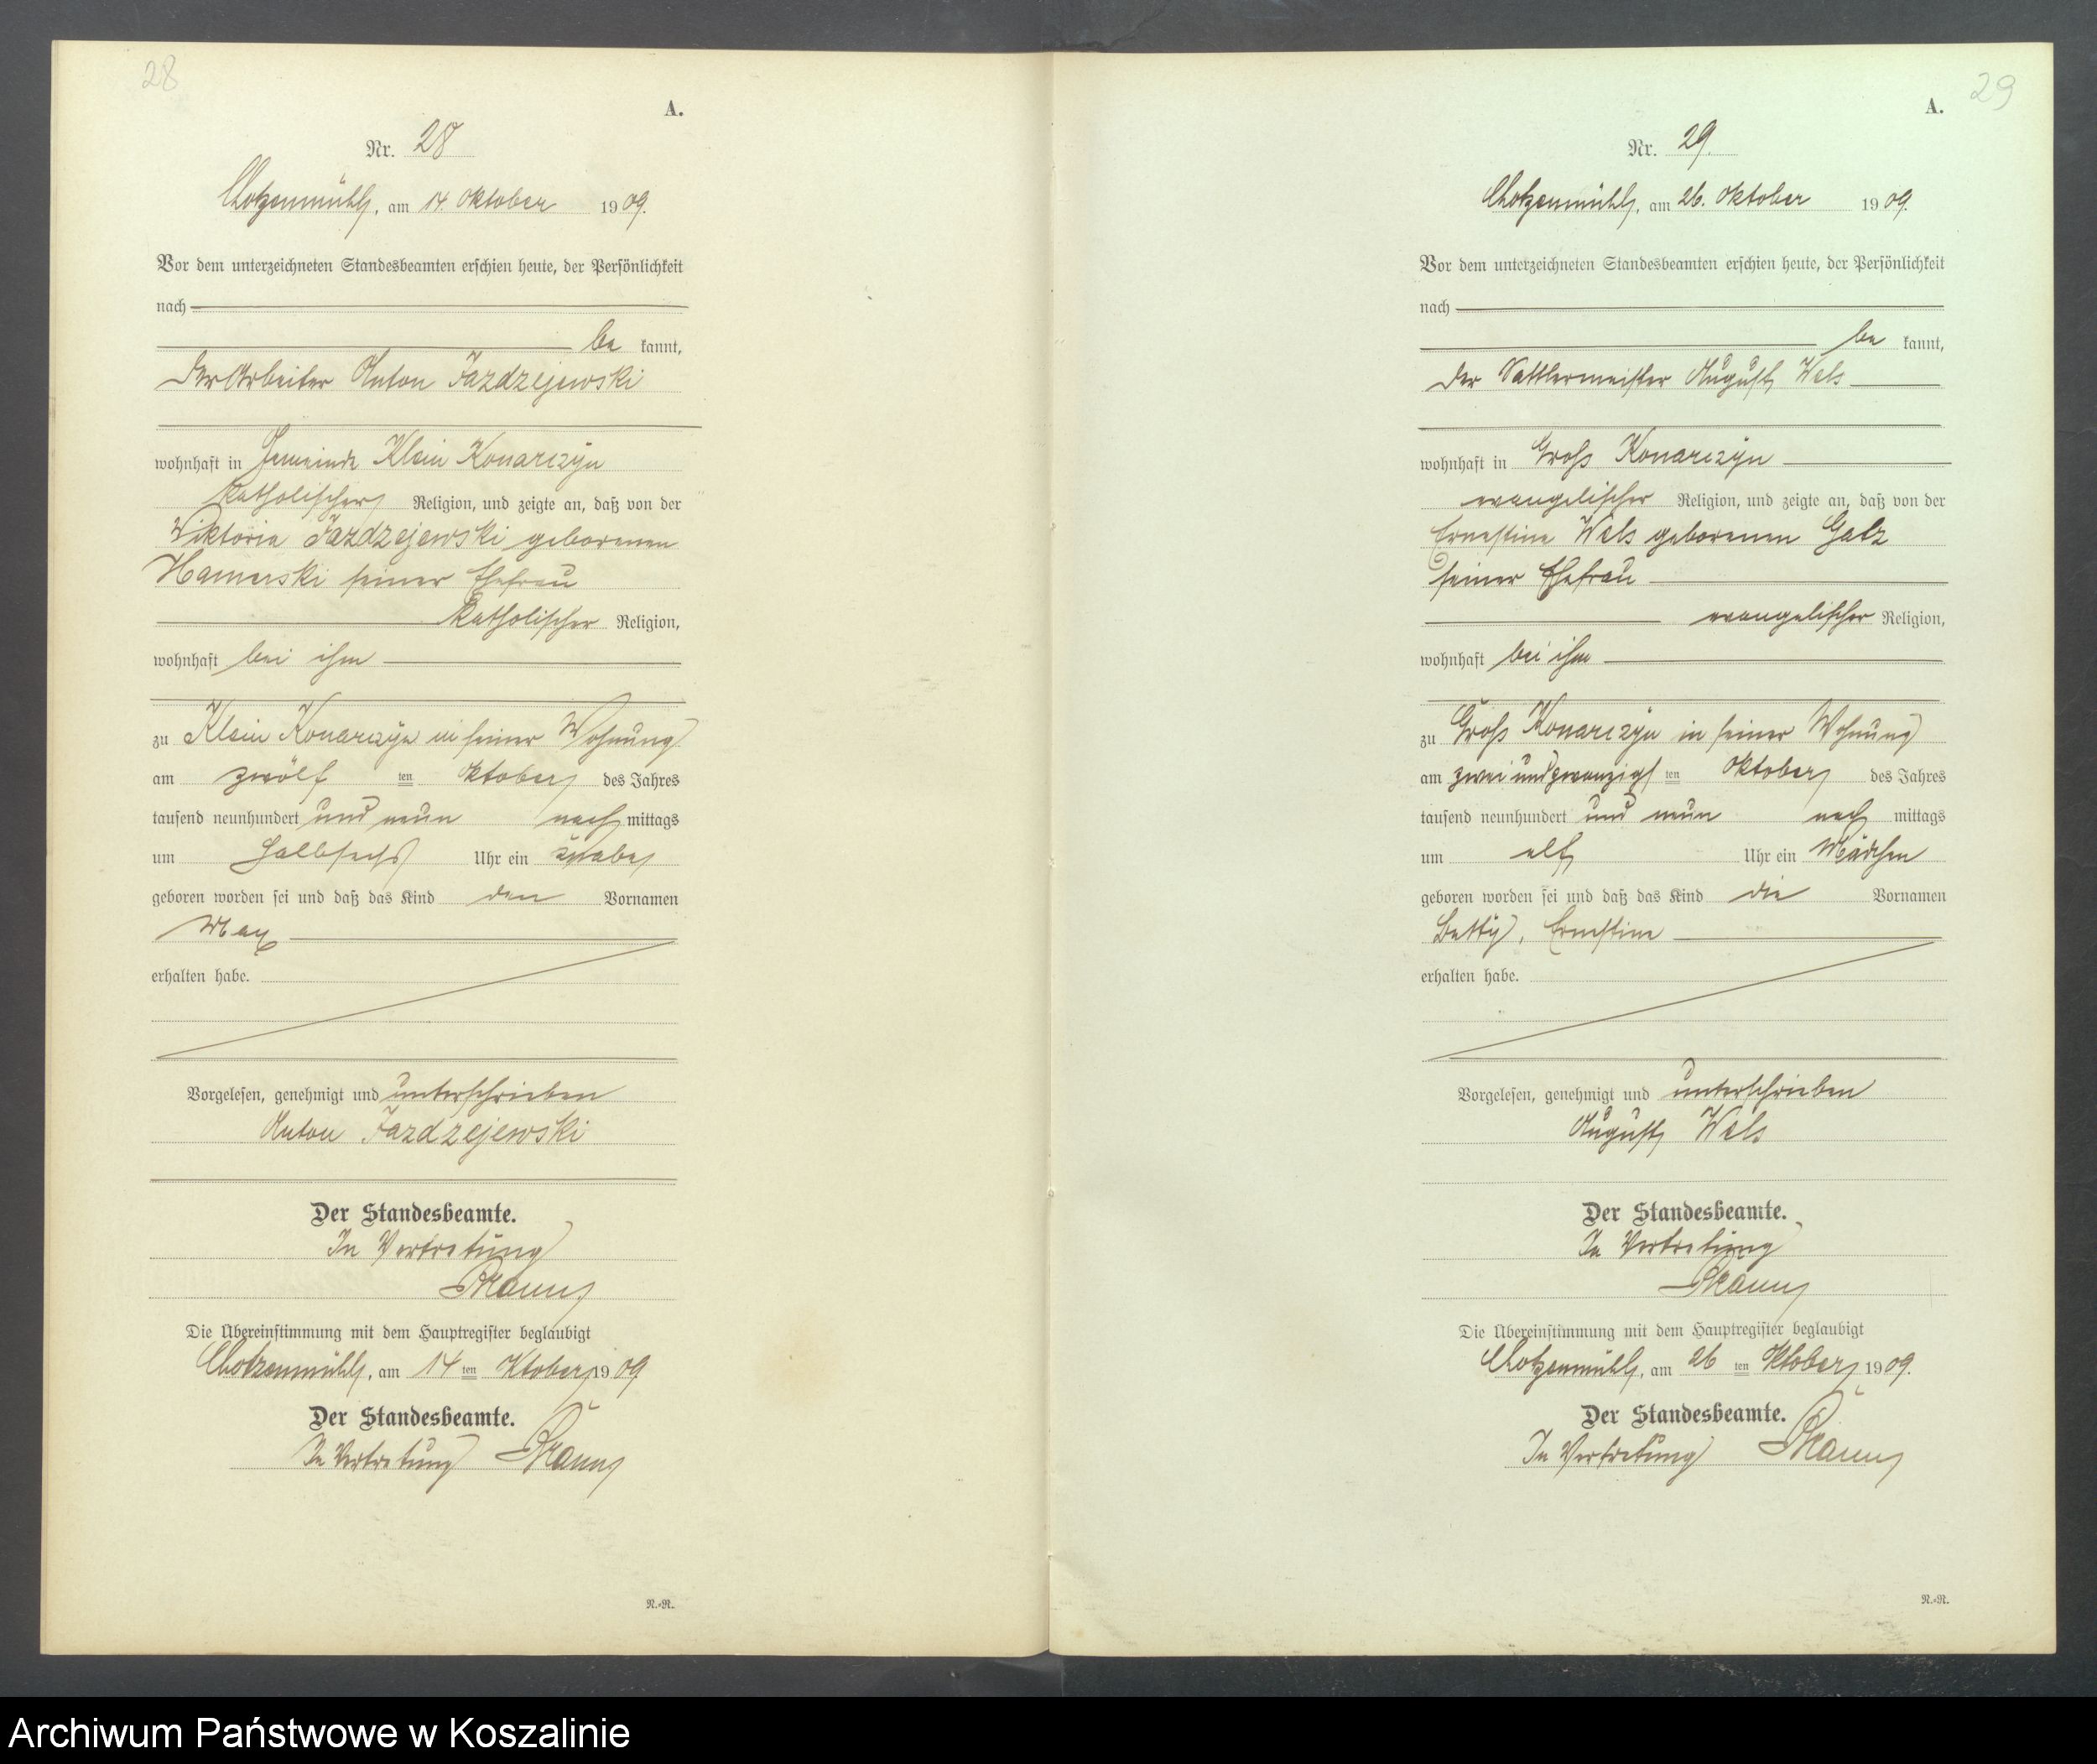 28
A.
Nr. 28
Chotzenmühl, am 14. Oktober 1909.
Vor dem unterzeichneten Standesbeamten erschien heute, der Persönlichkeit
nach
be kannt,
der Arbeiter Anton Jazdzejewski
wohnhaft in Gemeinde Klein Konarczyn
katholischer Religion, und zeigte an, daß von der
Wiktoria Jazdzejewski geborenen
Hamerski seiner Ehefrau
katholischer Religion,
wohnhaft bei ihm
zu Klein Konarczyn in seiner Wohnung
am zwölf ten Oktober des Jahres
tausend neunhundert und neun nach mittags
um halbsechs Uhr ein Knabe
geboren worden sei und daß das Kind den Vornamen
Max
erhalten habe.
Vorgelesen, genehmigt und unterschrieben
Anton Jazdzejewski
Der Standesbeamte.
In Vertretung
Die Übereinstimmung mit dem Hauptregister beglaubigt
Chotzenmühl, am 14 ten Oktober 1909
Der Standesbeamte.
In Vertretung
N.-N.
29
A.
Nr. 29.
Chotzenmühl, am 26. Oktober 1909.
Vor dem unterzeichneten Standesbeamten erschien heute, der Persönlichkeit
nach
be kannt,
der Sattlermeister August Wels
wohnhaft in Groß Konarczyn
evangelischer Religion, und zeigte an, daß von der
Ernestine Wels geborenen Galz
seiner Ehefrau
evangelischer Religion,
wohnhaft bei ihm
zu Groß Konarczyn in seiner Wohnung
am zwei und zwanzigs ten Oktober des Jahres
tausend neunhundert und neun nach mittags
um elf Uhr ein Mädchen
geboren worden sei und daß das Kind die Vornamen
Betty, Ernestine
erhalten habe.
Vorgelesen, genehmigt und unterschrieben
August Wels
Der Standesbeamte.
In Vertretung
Die Übereinstimmung mit dem Hauptregister beglaubigt
Chotzenmühl, am 26 ten Oktober 1909.
Der Standesbeamte.
In Vertretung
N.-N.
Archiwum Państwowe w Koszalinie